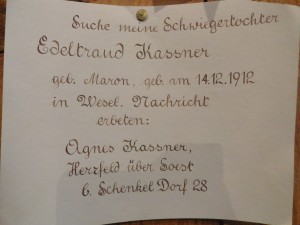 Suche meine Schwiegertochter
Edeltraud Kassner
geb. Maron, geb. am 14.12.1912
in Wesel. Nachricht
erbeten:
Agnes Kassner,
Herzfeld über Soest
b. Schenkel Dorf 28